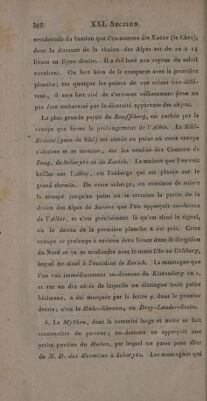 398 XXI. SECTION.
occidentale du bastion que l'on nomme dis Katze (le Chat),
dont la distance de la chaîne des Alpes est de 12 à 14
lieues en ligne droite. Il a été levé aux rayons du soleil
couchant. On fera bien de le comparer avec la première
planche; car quoique les points de vue soient très-diffé-
rens, il sera fort aisé de s'orienter suffisamment pour ne
pas être embarrassé par la diversité apparente des objets.
La plus grande partie de Rouffberg, est cachée par la
croupe que forme le prolongement de l'Albis. La Sihl-
Brücke (pont de Sihl) est située au point où cette croupe
s'abaisse et se termine, sur les confins des Cantons de
Zoug, de Schwytz et de Zurich. La maison que l'on voit
briller sur l'Albis, est l'auberge qui est placée sur le
grand chemin. De cette auberge, on continue de suivre
la croupe jusqu'au point où se termine la partie de la
droite des Alpes de Surène que l'on apperçoit au-dessus
de l'Albis, et c'est précisément là qu'était situé le signal,
où le dessin de la première planche a été pris. Cette
croupe se prolonge à environ deux lieues dans la direction
du Nord et va se confondre avec le mont Uto ou Utliberg,
lequel est situé à l'occident de Zurich. La montagne que
l'on voit immédiatement au-dessous du en
c, et sur un des côtés de laquelle on distingue trois petits
bâtimens, a été marquée par la lettre q. dans la première
dessin; c'est le Hohe-Rhonen, ou Drey-Länder-Stein.
b. Le Mythen, dont la sommité large et noire se fait
reconnaître de partout; au-dessous on apperçoit une
petite partie du Haken, par lequel on passe pour aller
de N. D. des Hermites à Schwytz. Les montagnes qui